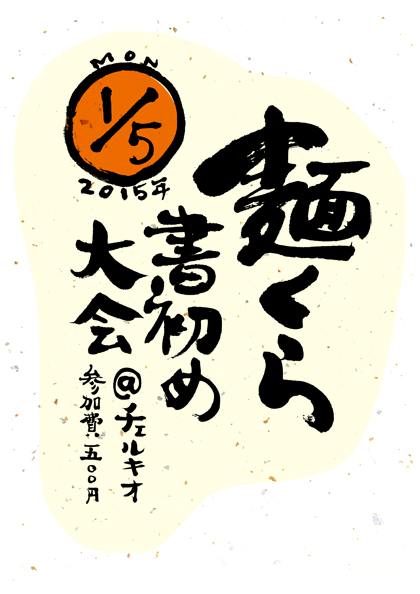 麺くら
MON
1/5
2015年
書初め
大会
@チェルキオ
参加費五〇〇円